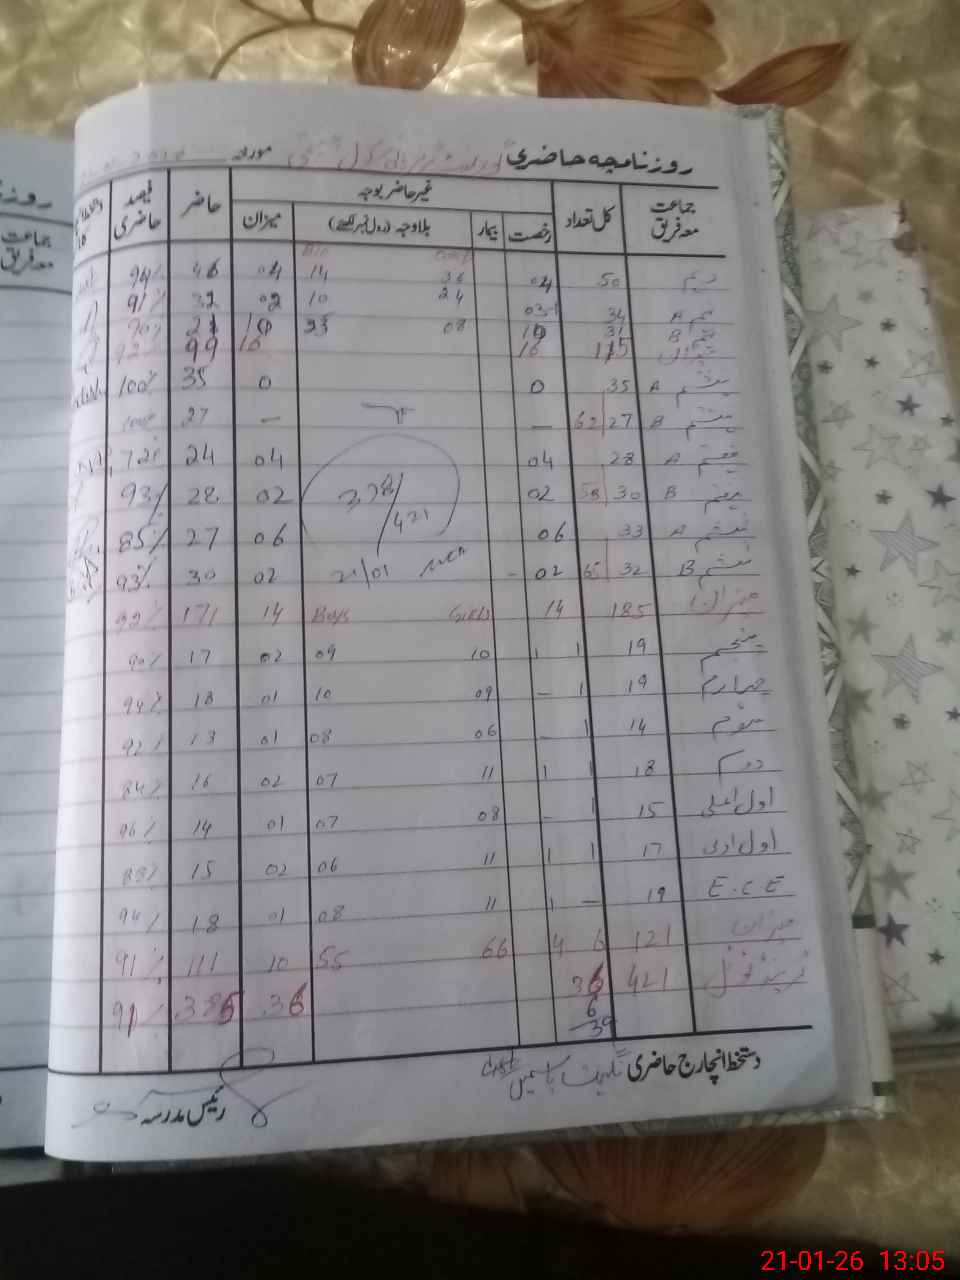 روزنامچہ حاضری
مورخہ
جماعت معہ فریق کل تعداد غیر حاضر بوجہ حاضر فیصد حاضری
رخصت بیمار بلاوجہ (رول نمبر لکھئے) میزان
دہم 50 04 36 14 04 46
نہم A 34 24 10 02 32 91%
B 31 08 23 10 21 90%
میزان 115 16 16 99 92%
ہشتم A 35 0 0 35 100%
ہشتم B 27 62 — — 27
ہفتم A 28 04 04 24
ہفتم B 30 58 02 02 28 93%
ششم A 33 06 06 27 85%
ششم B 32 65 02 02 30 93%
421
21/01
میزان 185 14 Girls Boys 14 171 92%
پنجم 19 1 1 10 09 02 17 90%
چہارم 19 1 – 09 10 01 18 94%
سوئم 14 1 – 06 08 01 13 92%
دوم 18 1 1 11 07 02 16 84%
اول اعلی 15 1 – 08 07 01 14 96%
اول ادنی 17 1 1 11 06 02 15 88%
E.C.E 19 — 1 11 08 01 18 94%
میزان 121 6 4 66 55 10 111 91%
گرینڈ ٹوٹل 421 36 36 385 91%
6
39
دستخط انچارج حاضری نگہت یاسمین
رئیس مدرسہ
روزنا
جماعت
معہ فریق
21-01-26 13:05